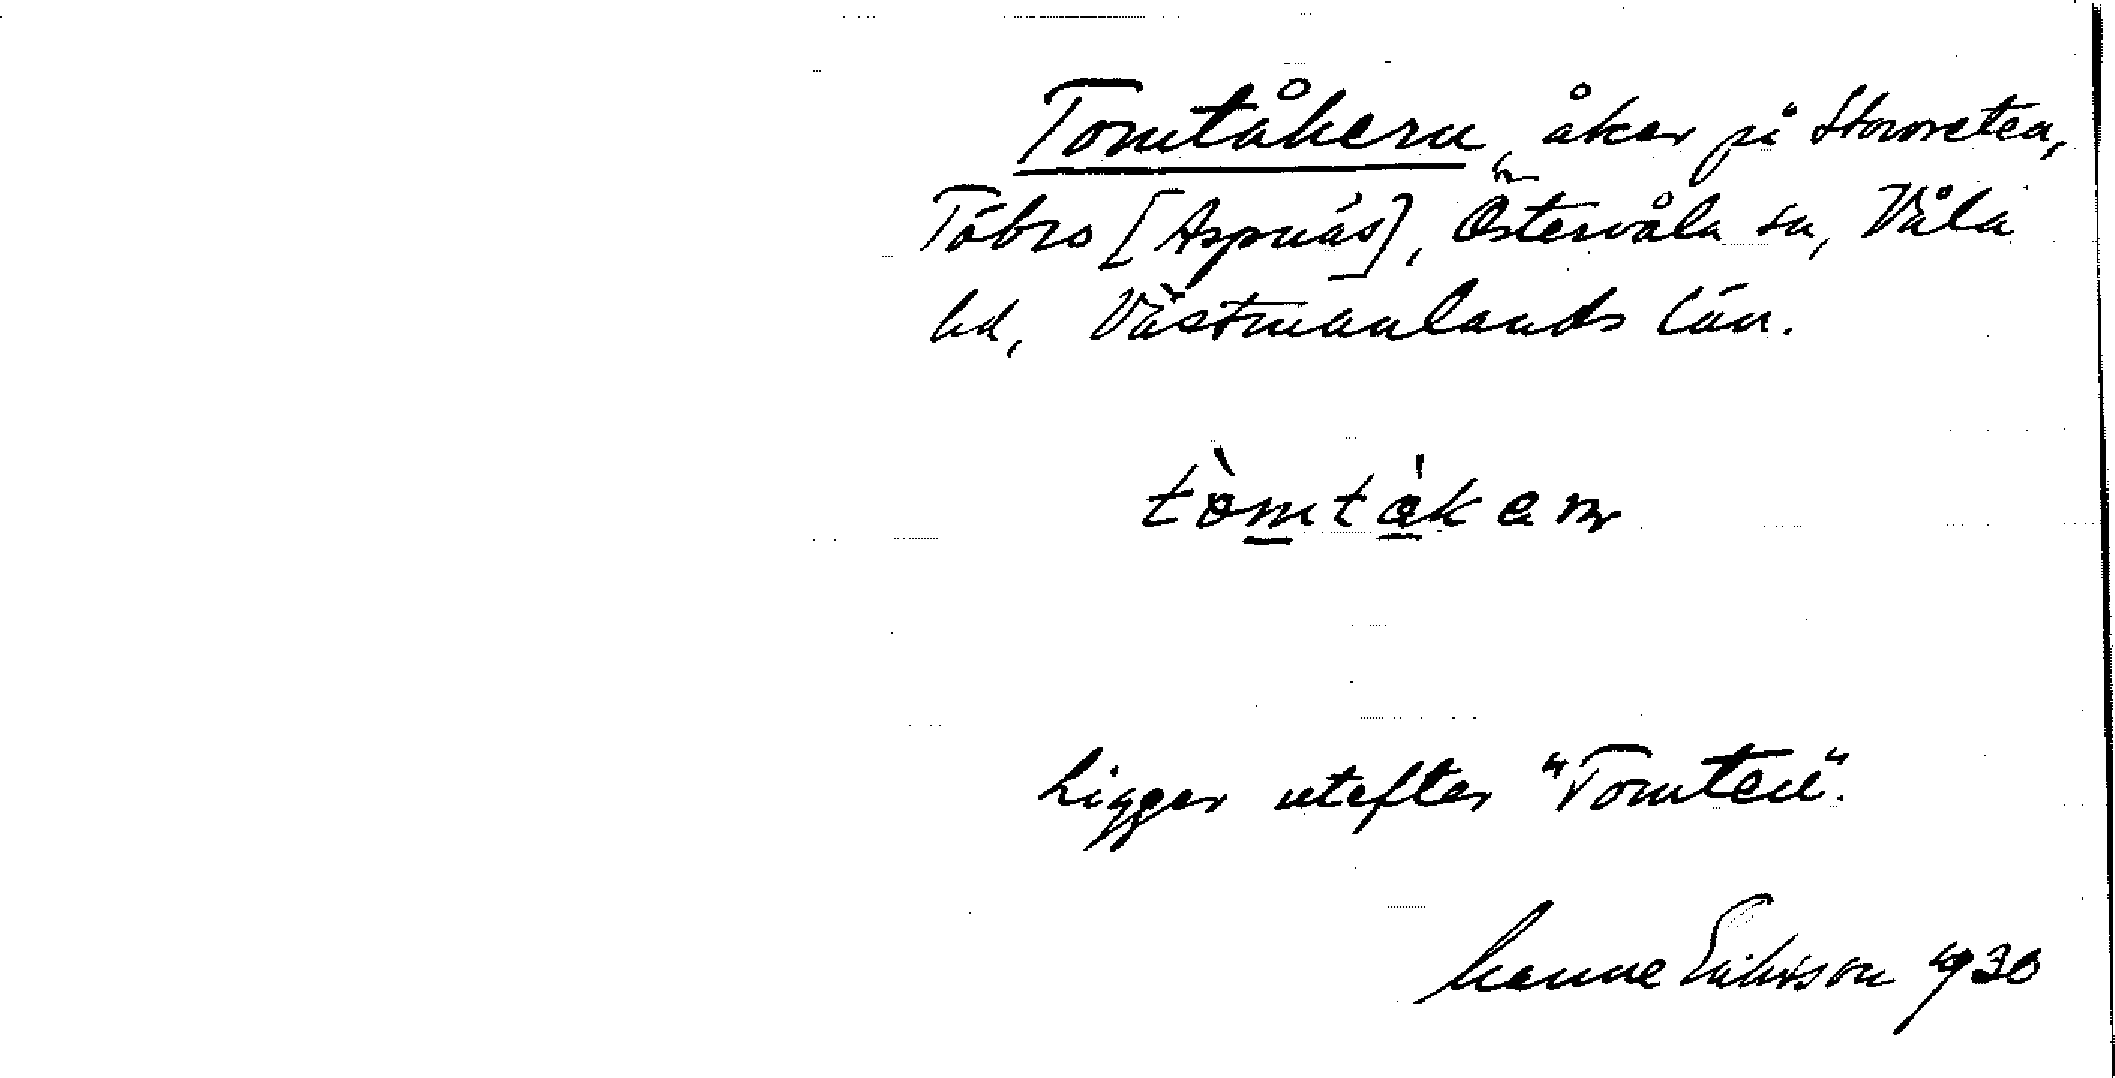 Tomtåkern, åker på Storvreten,
Tåbro [Aspnäs], Östervåla sn, Våla
hd, Västmanlands län.
tòmtåkern
Ligger utefter "Tomten".
Manne Eriksson 1930